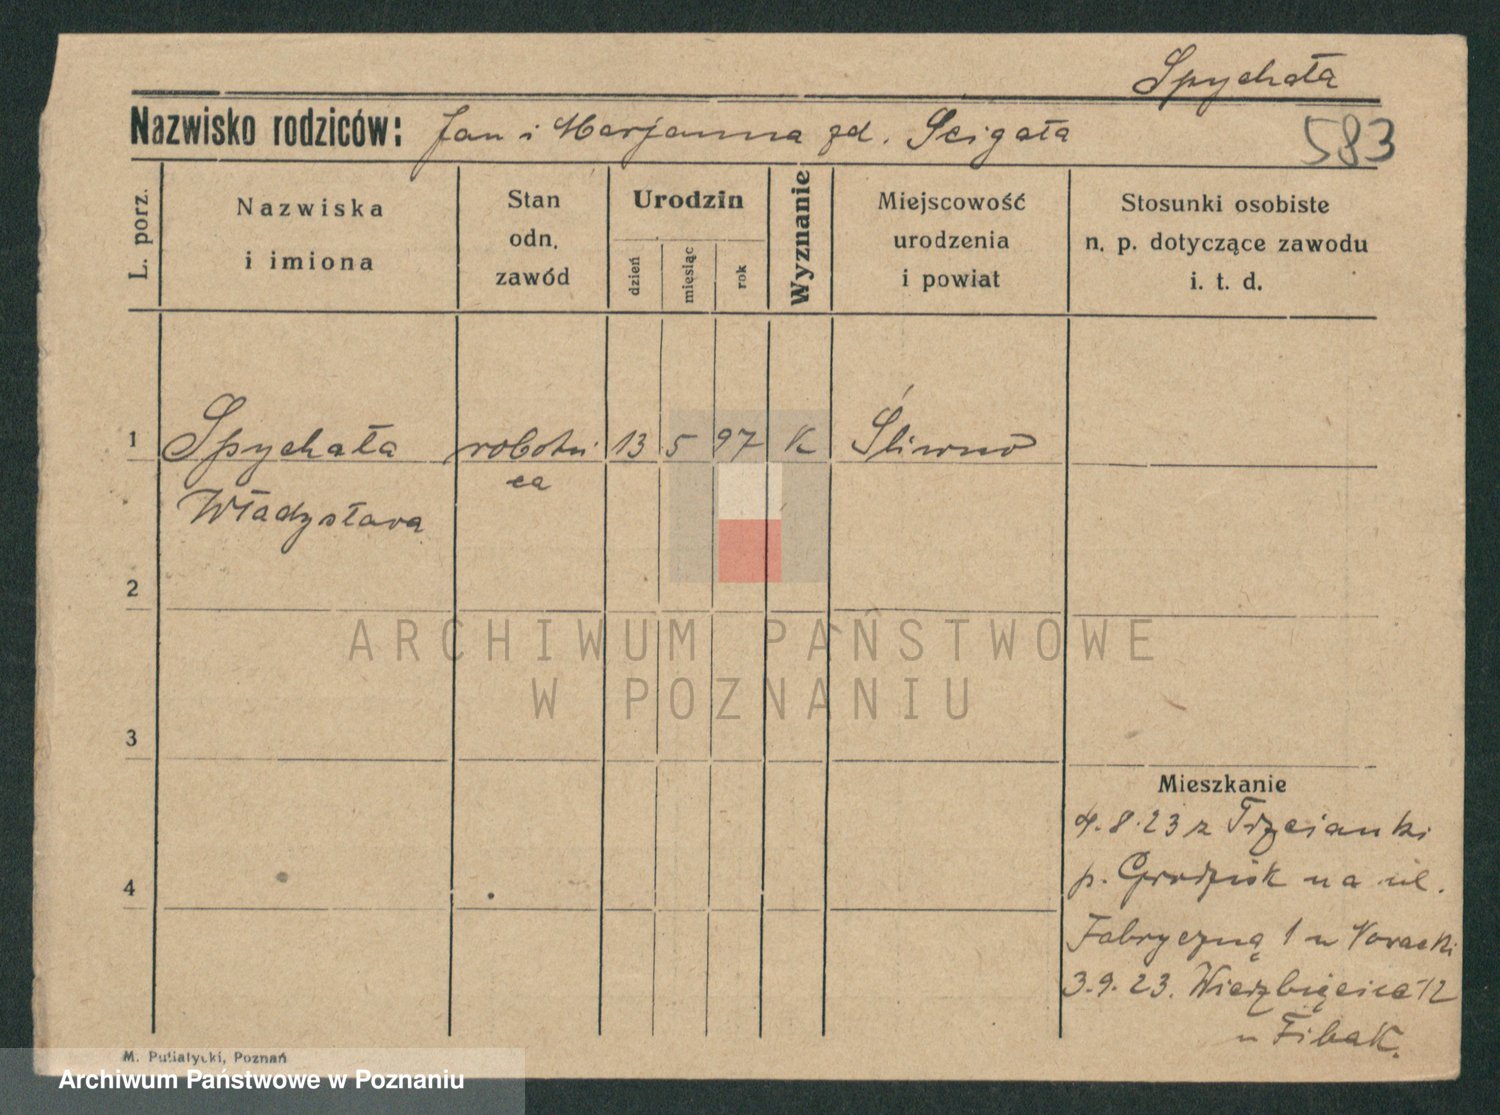 Spychała
Nazwisko rodziców: Jan i Marjanna zd. Ścigała
583
L. porz.
Nazwiska
i imiona
Stan
odn.
zawód
Urodzin
dzień
miesiąc
rok
Wyznanie
Miejscowość
urodzenia
i powiat
Stosunki osobiste
n. p. dotyczące zawodu
i. t. d.
1
Spychała
robotni
13
5
97
K
Śliwno
ca
Władysława
2
ARCHIWUM PAŃSTWOWE
W POZNANIU
3
Mieszkanie
4.8.23 z Trzcianki
p. Grodzisk na ul.
4
Fabryczną 1 u Noracki
3.9.23. Wierzbięcice 12
u Fibak.
M. Putiatycki, Poznań
Archiwum Państwowe w Poznaniu